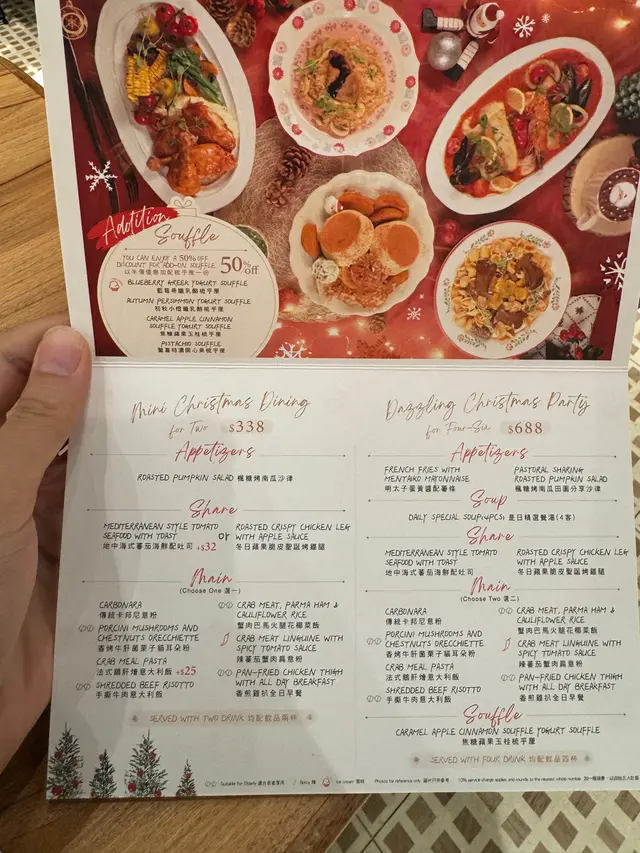 Addition
Souffle
YOU CAN ENJOY A 50% OFF
DISCOUNT FOR ADD-ON SOUFFLE
以半價優惠加配梳乎厘一份
50%
off
BLUEBERRY GREEK YOGURT SOUFFLE
藍莓希臘乳酪梳乎厘
AUTUMN PERSIMMON YOGURT SOUFFLE
初秋小燈籠乳酪梳乎厘
CARAMEL APPLE CINNAMON
SOUFFLE YOGURT SOUFFLE
焦糖蘋果玉桂梳乎厘
PISTACHIO SOUFFLE
Mini Christmas Dining
for Two $338
Appetizers
ROASTED PUMPKIN SALAD 楓糖烤南瓜沙律
Share
MEDITERRANEAN STYLE TOMATO
SEAFOOD WITH TOAST
地中海式蕃茄海鮮配吐司 +$32
or
ROASTED CRISPY CHICKEN LEG
WITH APPLE SAUCE
冬日蘋果脆皮聖誕烤雞腿
Main
(Choose One 選一)
CARBONARA
傳統卡邦尼意粉
PORCINI MUSHROOMS AND
CHESTNUTS ORECCHIETTE
香烤牛肝菌栗子貓耳朵粉
CRAB MEAL PASTA
法式鵝肝燴意大利飯 +$25
SHREDDED BEEF RISOTTO
手撕牛肉意大利飯
CRAB MEAT, PARMA HAM &
CAULIFLOWER RICE
蟹肉巴馬火腿花椰菜飯
CRAB MEAT LINGUINE WITH
SPICY TOMATO SAUCE
辣蕃茄蟹肉扁意粉
PAN-FRIED CHICKEN THIGH
WITH ALL DAY BREAKFAST
香煎雞扒全日早餐
SERVED WITH TWO DRINK 均配飲品兩杯
Dazzling Christmas Party
for Four-Six $688
Appetizers
FRENCH FRIES WITH
MENTAIKO MAYONNAISE
明太子蛋黃醬配薯條
PASTORAL SHARING
ROASTED PUMPKIN SALAD
楓糖烤南瓜田園分享沙律
Soup
DAILY SPECIAL SOUP*4PCS 是日精選餐湯(4客)
Share
MEDITERRANEAN STYLE TOMATO
SEAFOOD WITH TOAST
地中海式蕃茄海鮮配吐司
ROASTED CRISPY CHICKEN LEG
WITH APPLE SAUCE
冬日蘋果脆皮聖誕烤雞腿
Main
(Choose Two 選二)
CARBONARA
傳統卡邦尼意粉
PORCINI MUSHROOMS AND
CHESTNUTS ORECCHIETTE
香烤牛肝菌栗子貓耳朵粉
CRAB MEAL PASTA
法式鵝肝燴意大利飯
SHREDDED BEEF RISOTTO
手撕牛肉意大利飯
CRAB MEAT, PARMA HAM &
CAULIFLOWER RICE
蟹肉巴馬火腿花椰菜飯
CRAB MEAT LINGUINE WITH
SPICY TOMATO SAUCE
辣蕃茄蟹肉扁意粉
PAN-FRIED CHICKEN THIGH
WITH ALL DAY BREAKFAST
香煎雞扒全日早餐
Souffle
CARAMEL APPLE CINNAMON SOUFFLE YOGURT SOUFFLE
焦糖蘋果玉桂梳乎厘
SERVED WITH FOUR DRINK 均配飲品四杯
Suitable For Elderly 適合長者享用 / Spicy 辣 Ice cream 雪糕 Photos for reference only 圖片只供參考 10% service charge applies and rounds to the nearest whole number